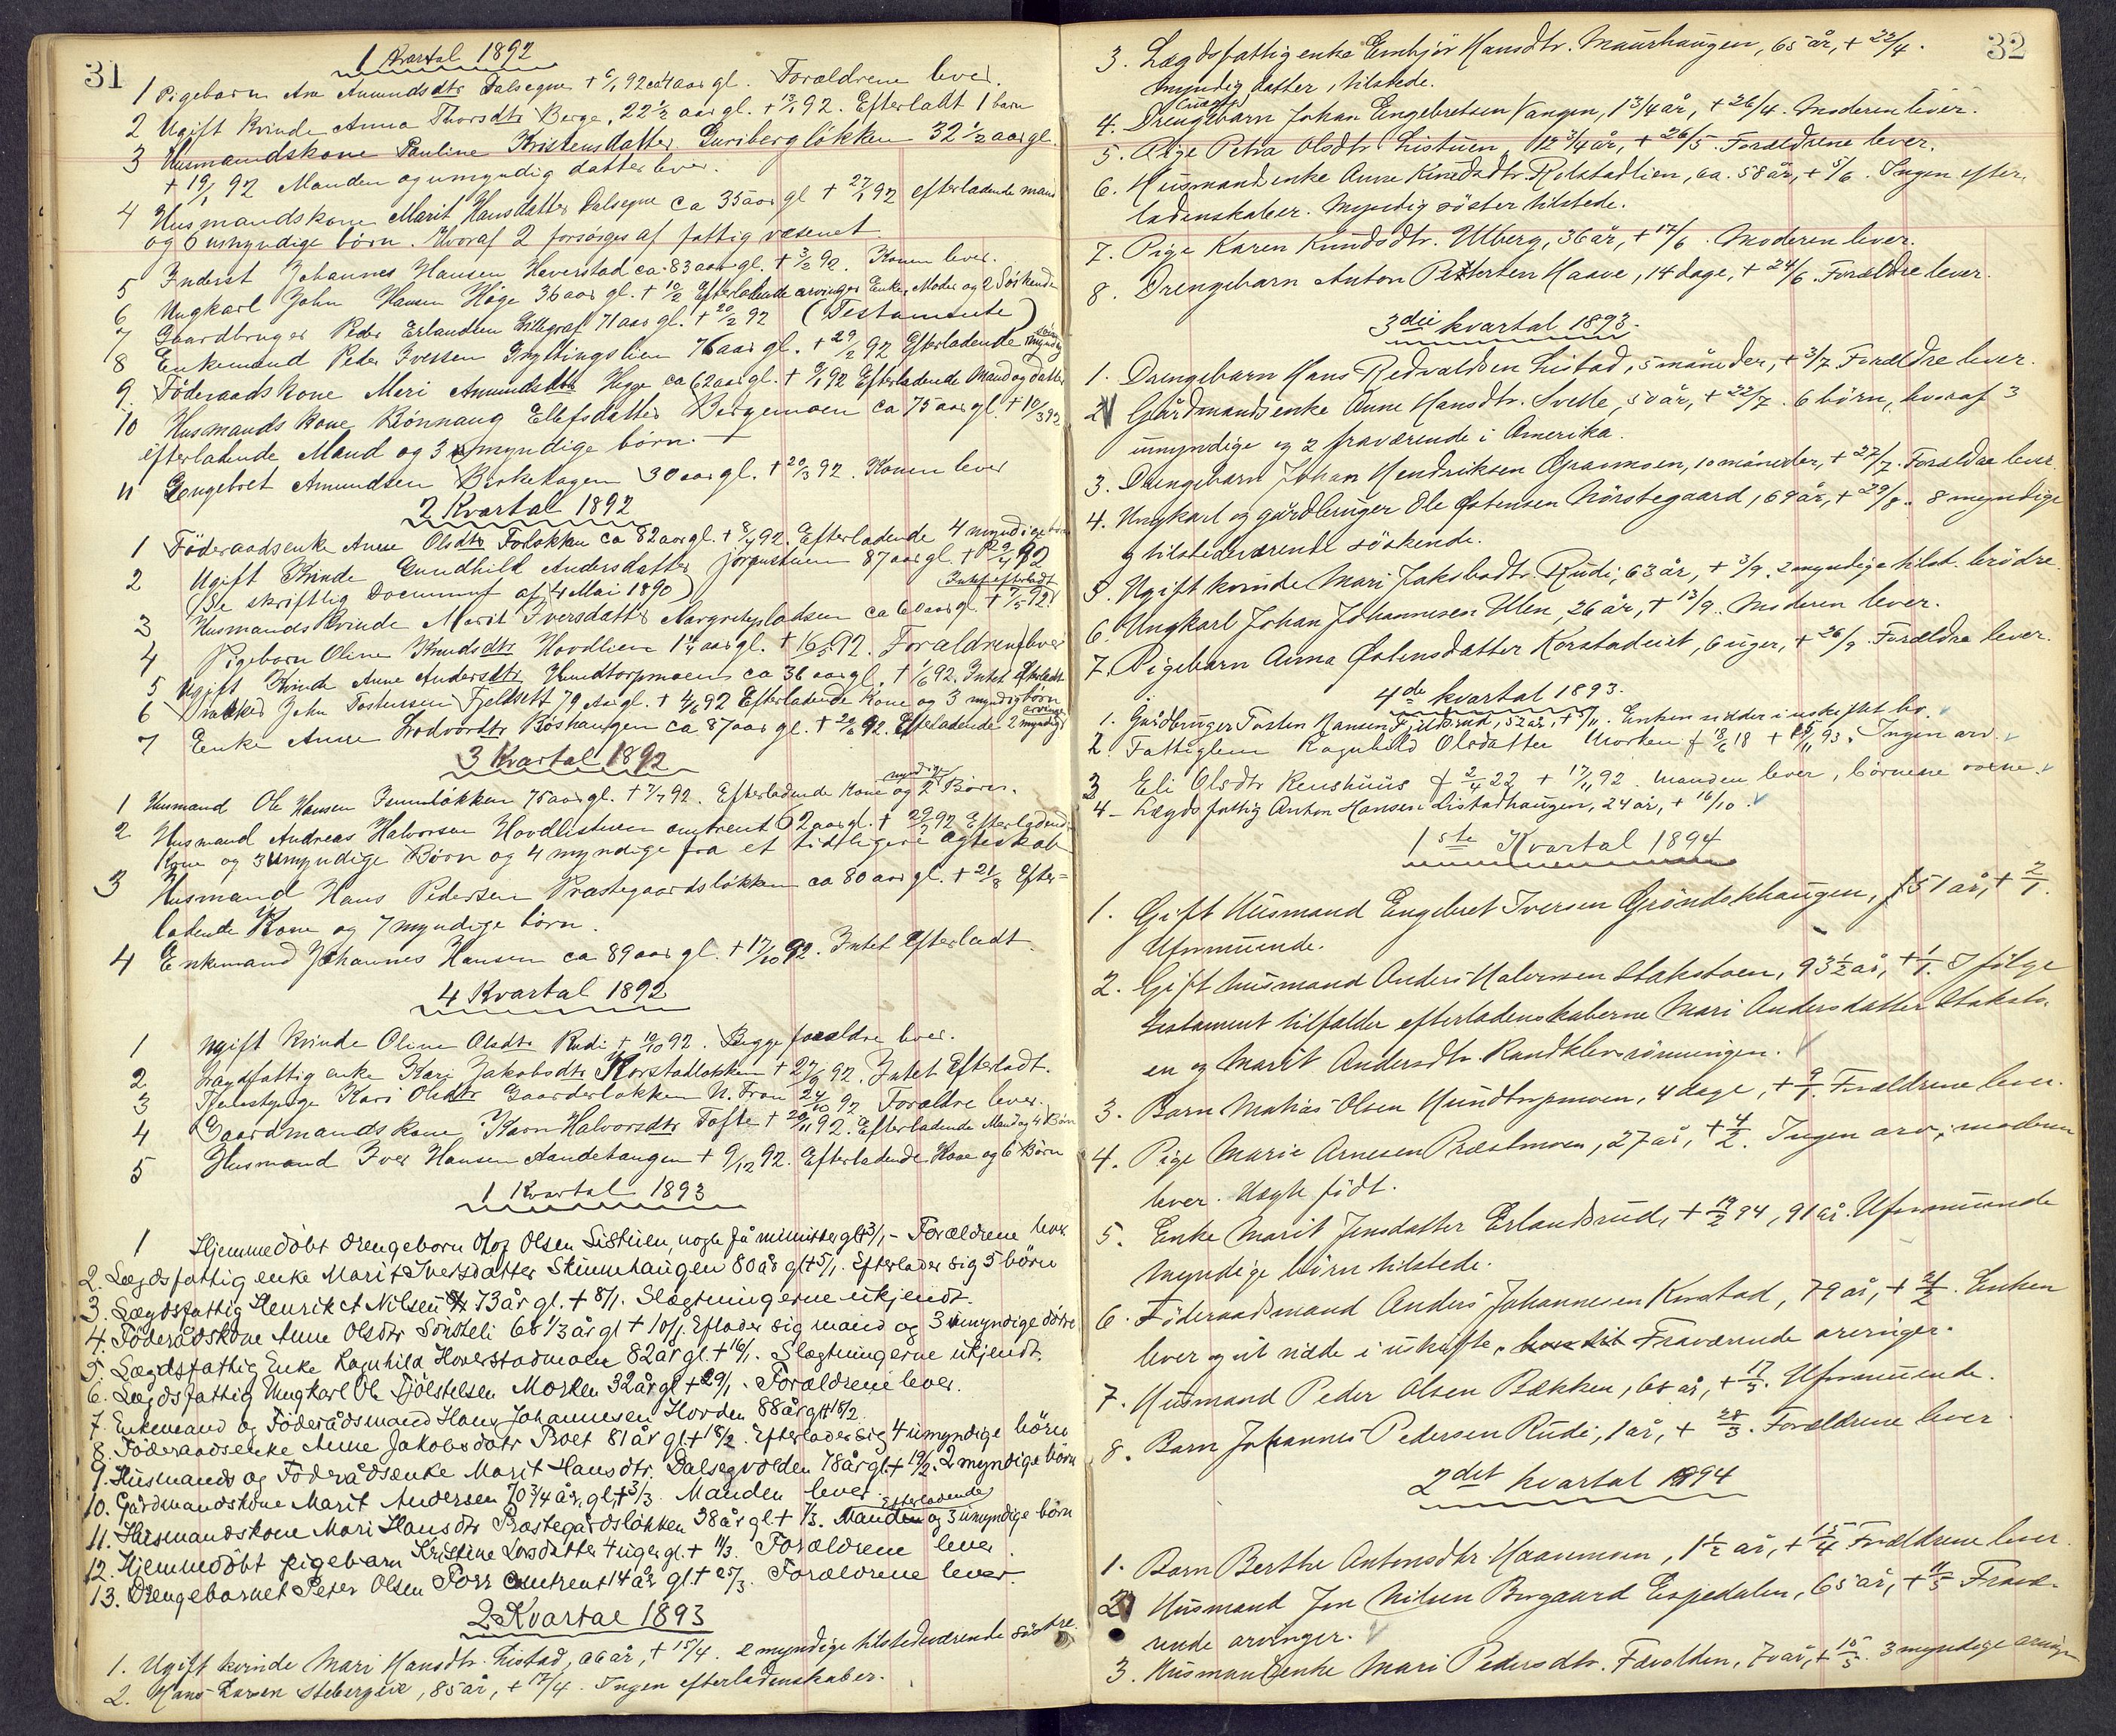 31
1 Kvartal 1892
1 Pigebarn Ane Amundsdtr Dalsegne + 6/1 92 ca 4 aar gl. Forældrene lever.
2 Ugift Kvinde Anna Thorsdtr Berge, 22 1/2 aar gl. + 13/1 92. Efterladt 1 barn
3 Husmandskone Pauline Kristensdatter Guriberg løkken 32 1/2 aar gl.
+ 19/1 92 Manden og umyndig datter lever.
4 Husmandskone Marit Hansdatter Dalsegne ca 35 aar gl + 27/1 92 efterladende mand
og 6 umyndige børn. Hvoraf 2 forsørges af fattigvæsenet
5 Inderst Johannes Hansen Heverstad ca 83 aar gl. + 3/2 92. Konen lever.
6 Ungkarl John Hansen Høge 36 aar gl. + 10/2 Efterladende arvinger Enke, Moder og 2 Søskende
7 Gaardbruger Peder Erlandsen Lillegraf 71 aar gl. + 20/2 92 (Testamente)
8 Enkemand Peder Iversen Gryttingslien 76 aar gl. + 29/2 92 Efterladende myndig
9. Föderaads Kone Mari Amundsdtr Hegge ca 62 aar gl. + 9/1 92 Efterladende Mand og datter
10 Husmands Kone Rönnaug Elefsdatter Bergemoen ca 75 aar gl. + 10/3 92
efterladende Mand og 3 myndige børn.
11 Engebret Amundsen Birkehagen 30 aar gl. + 20/3 92. Konen lever
2 Kvartal 1892
1 Föderaadsenke Anne Olsdtr Foløkken ca 82 aar gl. + 8/4 92. Efterladende 4 myndige børn
2 Ugift Kvinde Gundhild Andersdatter Jørgenstuen 87 aar gl. + 29/4 92
(Se skriftlig Document af 4 Mai 1890) Intet efterladt
3 Husmands Kvinde Marit Iversdatter Margretepladsen ca 60 aar gl. + 7/5 92.
4 Pigebarn Oline Knudsdtr Hovdlien 1 1/4 aar gl. + 16/5 92. Forældrene lever
5 Ugift Kvinde Anne Andersdtr Hundtorpmoen ca 36 aar gl. + 1/6 92. Intet Efterladt
6 John Tostensen Fjeldsett 79 Aar gl. + 4/6 92 Efterladende Kone og 3 myndig børn
7 Enke Anne Lodvardtr Røshaugen ca 87 aar gl. + 20/6 92. Efterladende 2 myndige arvinge
3 Kvartal 1892
1 Husmand Ole Hansen Isumløkken 75 aar gl. + 7/7 92. Efterladende Kone og 2 myndige Børn.
2 Husmand Andreas Halvorsen Hovdlistuen omtrent 62 aar gl. + 29/7 92 Efterladende
Kone og 3 umyndige Børn og 4 myndige fra et tidligere Ægteskab
3 Husmand Hans Pedersen Præstegaardsløkken ca 80 aar gl. + 21/8 Efter=
ladende Kone og 7 myndige børn.
4 Enkemand Johannes Hansen ca 89 aar gl. + 17/10 92. Intet Efterladt
4 Kvartal 1892
1 Ugift Kvinde Oline Olsdtr Rudi + 10/10 92. Begge forældre lever.
2 Lægdsfattig enke Kari Jakobsdtr Korstadløkken + 27/9 92. Intet Efterladt.
3 Tjenestpige Kari Olsdtr Gaarderløkken N. Fron 24/10 92 Forældre lever.
4 Gaardmandskone Karn Halvorsdtr Tofte + 20/11 92. Efterladende Mand og 4 Børn
5 Husmand Iver Hansen Aandehaugen + 9/12 92. Efterladende Kone og 6 Børn
1 Kvartal 1893
1 Hjemmedöbt drengebarn Olof Olsen Listuen, nogle få minutter gl + 3/1 - Forældrene lever
2. Lægdsfattig enke Marit Iversdatter Skinnehaugen 80 år gl + 5/1. Efterlader sig 5 børn
3. Lægdsfattig Henrik Nilsen 73 år gl. + 8/1. Slægtningerne ukjendt.
4. Föderådskone Anne Olsdtr Sörsteli 68 1/3 år gl + 10/1. Eflader sig mand og 3 umyndige døtre
5. Lægdsfattig Enke Ragnhild Hoverstadmoen 82 år gl. + 16/1. Slægtningerne ukjendt.
6. Lægdsfattig Ungkarl Ole Tjöstelsen Morken 32 år gl + 29/1. Forældrene lever.
7. Enkemand og Föderådsmand Hans Johannesen Hovden 88 år gl + 15/2
8. Föderaadsenke Anne Jakobsdatr Roet 81 år gl + 18/2. Efterlader sig 4 umyndige börn
9. Husmands og Föderådsenke Marit Hansdtr. Dalsegvolden 78 år gl. + 19/2. 2 myndige børn
10. Gårdmandskone Marit Andersen 70 3/4 år, gl, + 3/3. Manden lever.
11. Husmandskone Mari Hansdtr Præstegårdsløkken 38 år gl + 7/3. Efterladende Manden og 3 umyndige børn
12. Hjemmedöbt pigebarn Kristine Larsdatter 4 uger gl. + 11/3. Forældrene lever.
13. Drengebarnet Peter Olsen Forr omtrent 14 år gl + 25/3. Forældrene lever.
2 Kvartal 1893
1. Ugift kvinde Mari Hansdtr. Listad, 66 år, + 15/4. 2 myndige tilstedeværende søstre.
2. Hans Larsen Steberglie, 85 år, + 17/4. Ingen efterladenskaber.
32
3. Lægdsfattig enke Embjör Hansdtr. Maurhaugen, 65 år, + 22/4.
Myndig datter, tilstede.
4. Drengebarn Johan Engebretsen Vangen, 1 3/4 år, + 26/4. Moderen lever.
5. Pige Petra Olsdtr Listuen, 12 3/4 år, + 26/5. Forældrene lever.
6. Husmandsenke Anne Knudsdtr. Rolstadlien, ca. 58 år, + 5/6. Ingen efter-
ladenskaber. Myndig söster tilstede.
7. Pige Karen Knudsdtr. Ulberg, 36 år, + 17/6. Moderen lever.
8. Drengebarn Anton Petersen Haave, 14 dage, + 24/6. Forældre lever.
3die kvartal 1893.
1. Drengebarn Hans Redvaldsen Listad, 5 måneder, + 3/7 Forældre lever.
2 Gårdmandsenke Anne Hansdtr. Svelle, 50 år, + 22/7. 6 börn, hvoraf 3
umyndige og 2 fraværende i Amerika.
3. Drengebarn Johan Hendriksen Granmoen, 10 måneder, + 27/7. Forældre lever.
4. Ungkarl og gårdbruger Ole Østensen Nörstegaard, 69 år, + 29/8. 8 myndige
og tilstedeværende söskende.
5. Ugift kvinde Mari Jakobsdtr. Rudi, 63 år, + 3/9. 2 myndige tilst. brödre.
6. Ungkarl Johan Johannesen Ulen, 26 år, + 13/9. Moderen lever.
7. Pigebarn Anna Østensdatter Korstadeiet, 6 uger, + 26/9. Forældre lever.
4de kvartal 1893.
1. Gårdbruger Tosten Hansen Fjildsrud, 52 år, + 5/11. Enken sidder i uskiftet bo.
2. Fattiglem Ragnhild Olsdatter Morken f 18/6 18 + 15/11 93. Ingen arv.
3 Eli Olsdtr Renshuus f 2/4 22 + 17/11 92. Manden lever, børnene voxne.
4 - Lægdsfattig Anton Hansen Listadhaugen, 24 år, + 16/10.
1ste Kvartal 1894
1. Gift Husmand Engebret Iversen Gröndokhaugen, 51 år, + 2/1.
Uformuende.
2. Gift husmand Anders Halvorsen Stakstoen, 93 1/2 år, + 1/1. I fölge
testament tilfalder efterladenskaberne Mari Andersdatter Staksto-
en og Marit Andersdtr. Randklevrönningen.
3. Barn Mathias Olsen Hundtorpmoen, 4 dage, + 9/1. Forældrene lever.
4. Pige Marie Arnesen Præstmoen, 27 år, + 4/2. Ingen arv; moderen
lever. Uægte födt.
5. Enke Marit Jensdatter Erlandsrud, + 19/2 94, 91 år. Uformuende
Myndige börn tilstede.
6. Föderaadsmand Anders Johannesen Korstad, 79 år, + 21/2. Enken
lever og vil sidde i uskifte. Fraværende arvinger.
7. Husmand Peder Olsen Bækken, 68 år, + 17/3. Uformuende.
8. Barn Johannes Pedersen Rudi, 1 år, + 28/3. Forældrene lever
2det kvartal 1894
1. Barn Berthe Antonsdtr Haanmoen, 1 1/2 år, + 15/4 Forældrene lever.
2. Husmand Jon Nilsen Borgaard Espedalen, 65 år, + 11/5 Fravæ-
rende arvinger.
3. Husmandsenke Mari Pedersdtr. Færolden, 70 år, + 10/5. 3 myndige arvinger